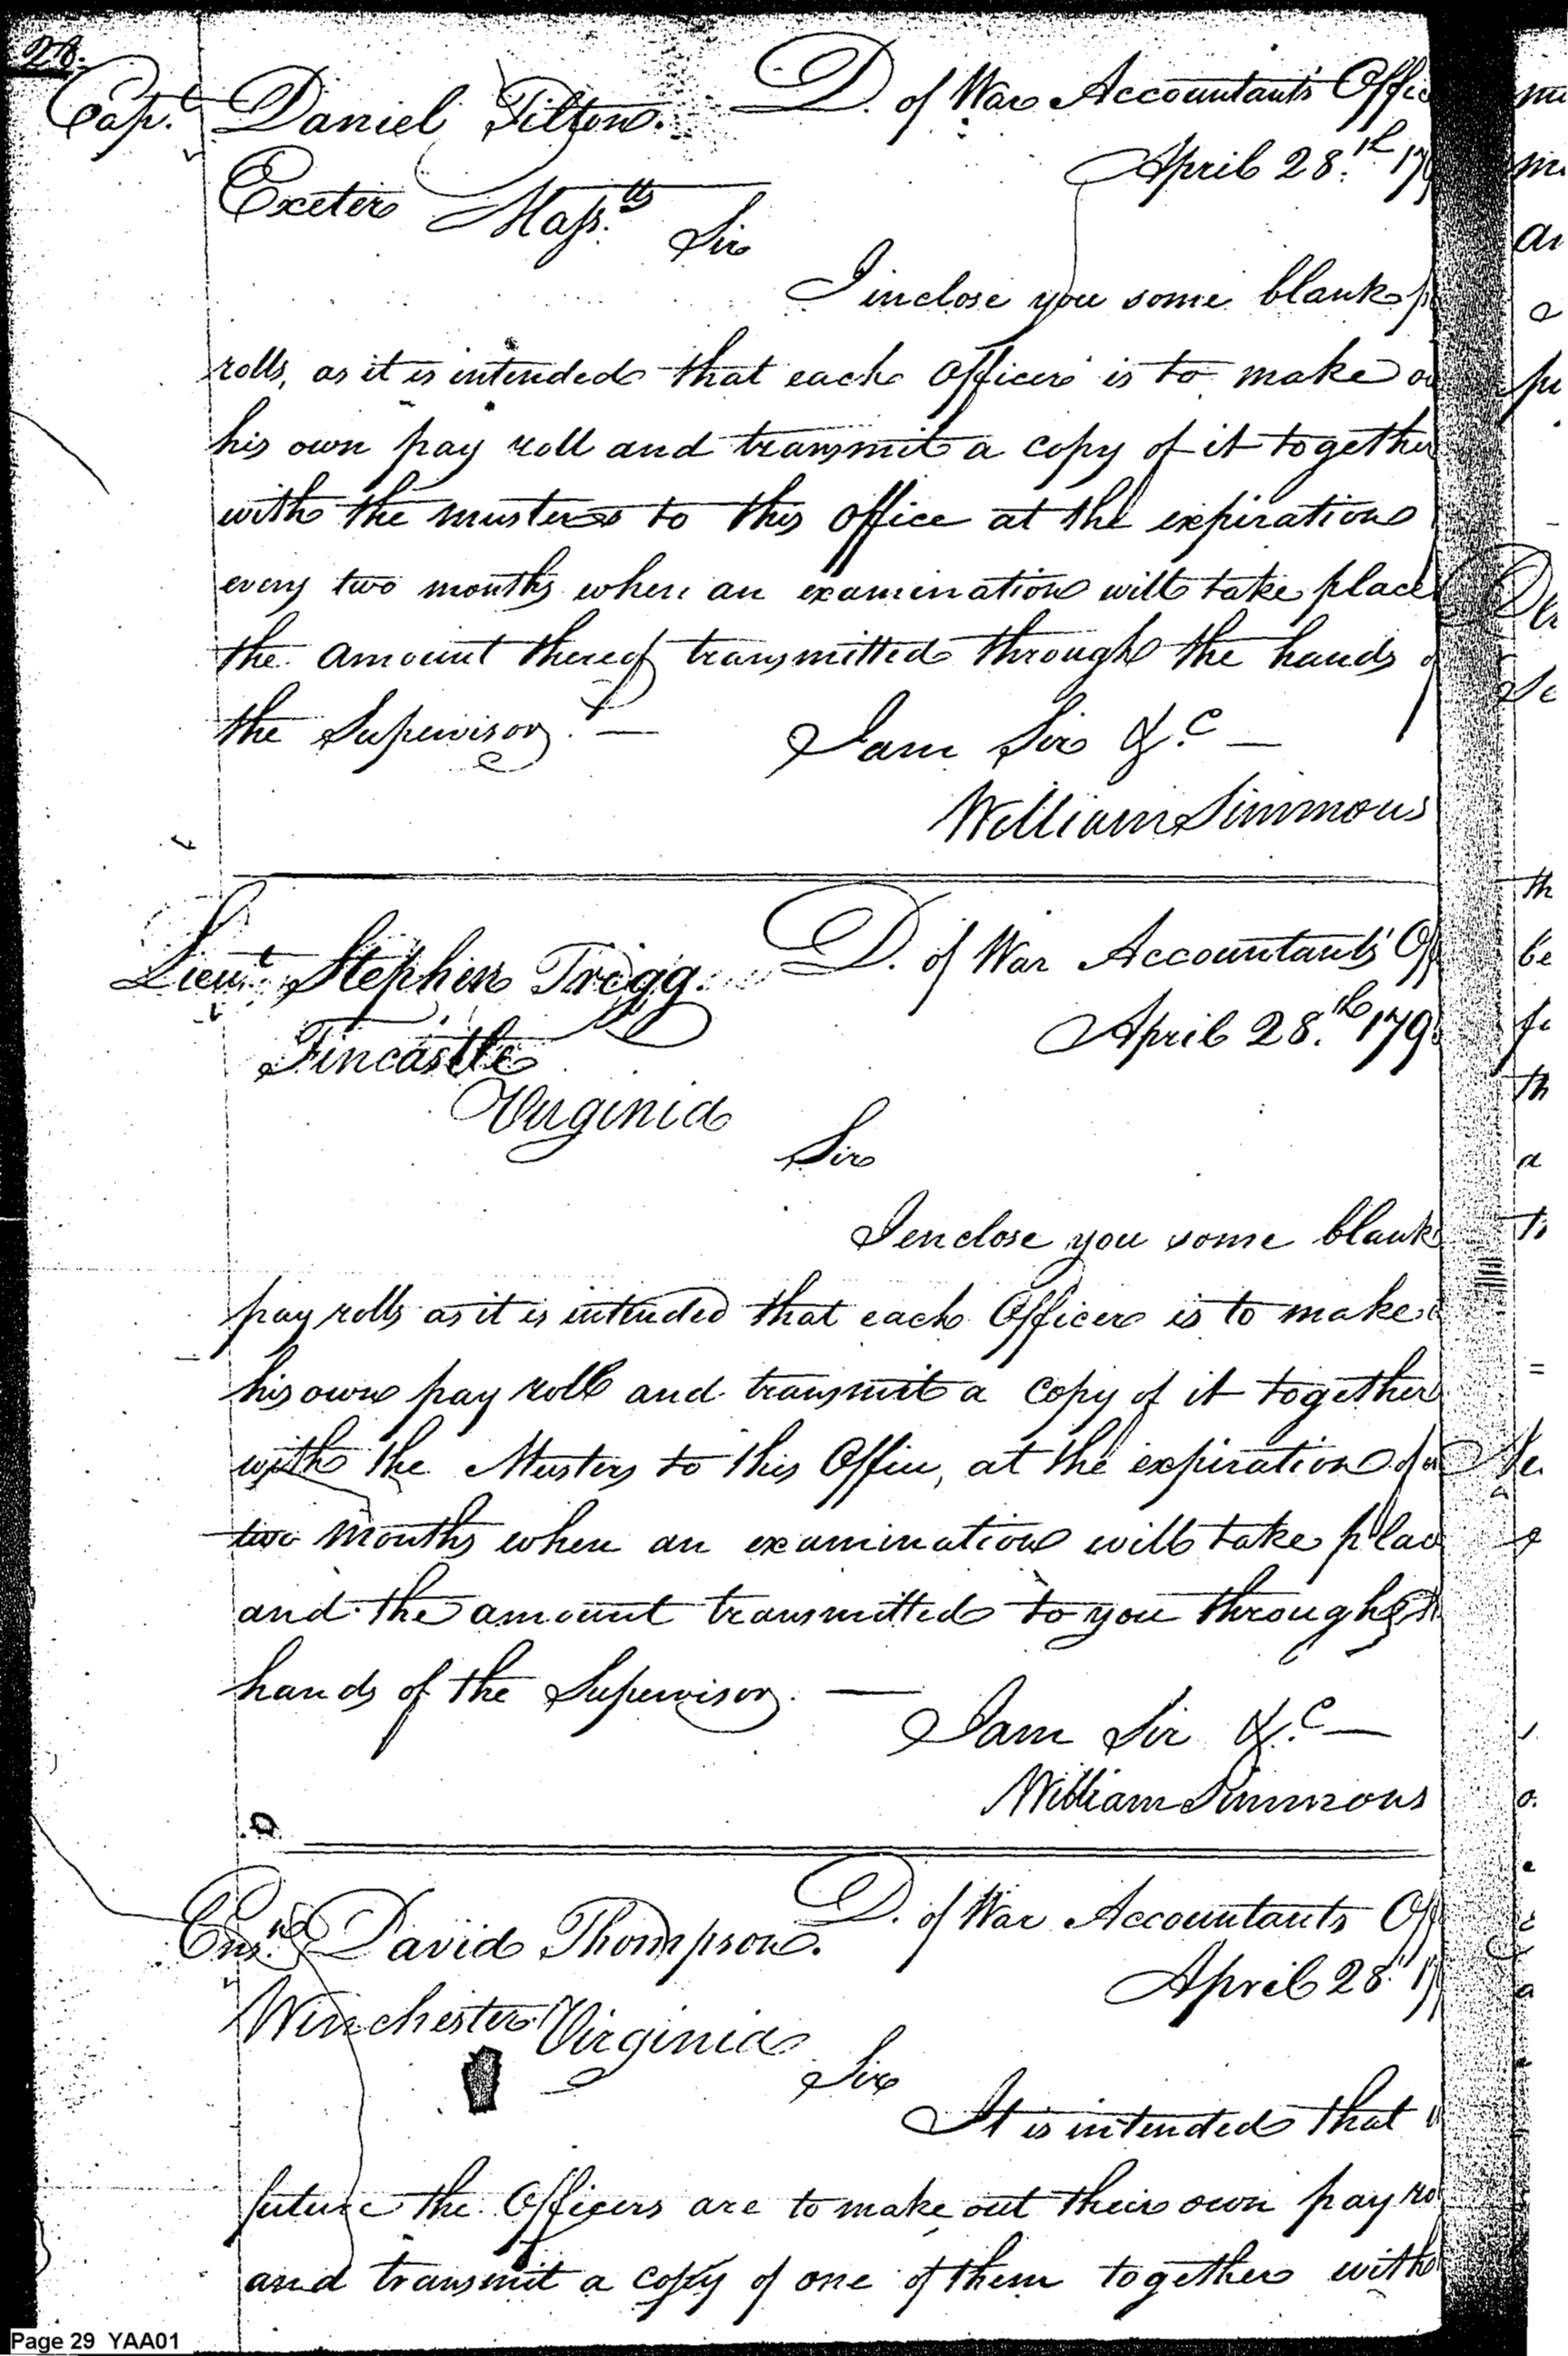 28.
Capt. Daniel Tilton. D. of War Accountants Offic
April 28.th 179
Exeter Massts
Sir
I inclose you some blank p
rolls, as it is intended that each Officer is to make ou
his own pay roll and transmit a copy of it together
with the musters to this office at the expiration
every two months when an examination will take place
the amount thereof transmitted through the hands o
the Supervisor. —
I am Sir &c —
William Simmons
Lieut Stephen Trigg. D. of War Accountants' Off
April 28.th 179
Fincastle
Virginia
Sir
I enclose you some blank
pay rolls as it is intended that each Officer is to make o
his own pay roll and transmit a copy of it together
with the Musters to this Office, at the expiration of
two months when an examination will take plac
and the amount transmitted to you through th
hands of the Supervisor. —
I am Sir &c —
William Simmons
Ensn David Thompson. D. of War Accountants Off
April 28th 17
Winchester Virginia
Sir
It is intended that
future the Officers are to make out their own pay ro
and transmit a copy of one of them together with
Page 29 YAA01